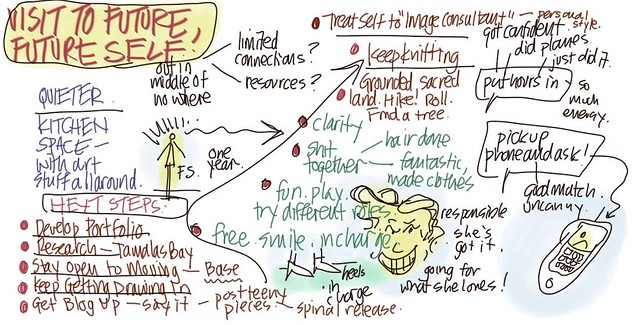 VISIT TO FUTURE,
FUTURE SELF!
out in
middle of
no where
limited
connections?
resources?
QUIETER
KITCHEN
SPACE -
with art
stuff all around.
F.S.
one
year.
NEXT STEPS:
Develop Portfolio
Research - Tamalas Bay
Stay open to Moving - Base
Keep Getting Drawing in
Get Blog Up - say it - post teeny
pieces - spinal release.
Treat Self to "Image Consultant" - personal
style.
Keep knitting
Grounded, sacred
land. Hike! Roll.
Find a tree.
clarity
shit
together
hair done
fantastic,
made clothes
fun. play.
try different roles.
free. smile. in charge
heels
in
charge
responsible
she's
got it.
going for
what she loves!
got confident
did planes
just did it.
put hours in
so
much
energy.
pick up
phone and ask!
good match.
uncanny